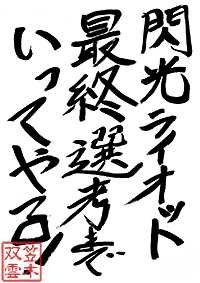 閃光ライオット
最終選考まで
いってやる!
笠木
双雲